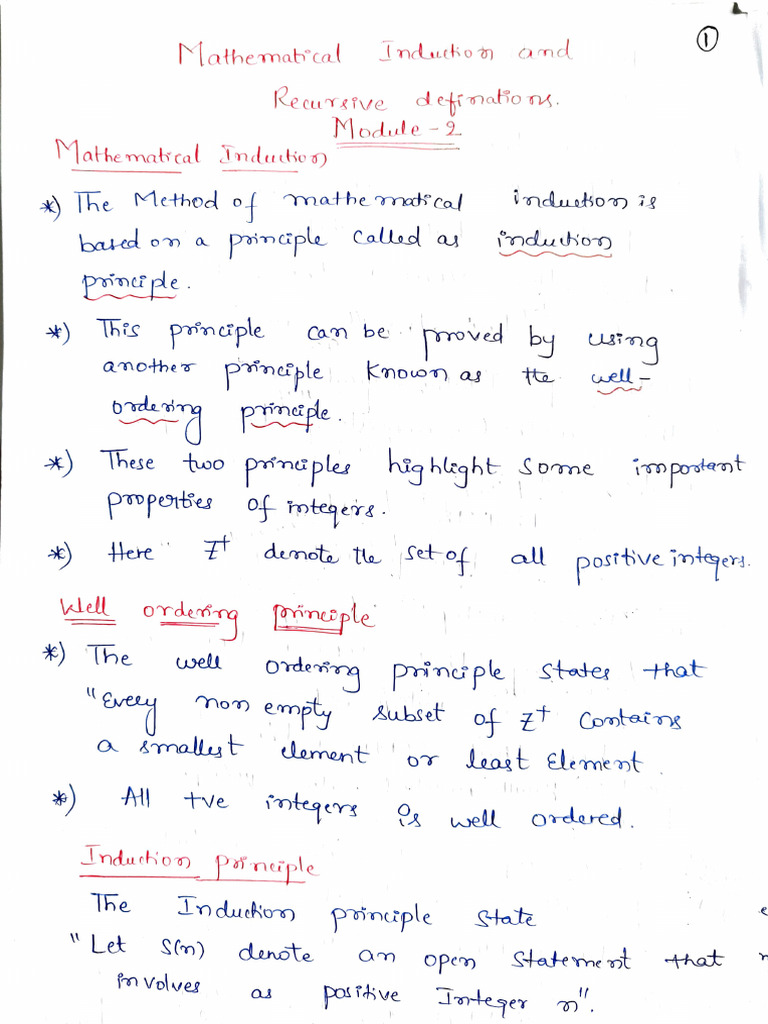 1
Mathematical Induction and
Recursive definations.
Module-2
Mathematical Induction
*) The Method of mathematical induction is
based on a principle called as induction
principle.
*) This principle can be proved by using
another principle known as the well-
ordering principle.
*) These two principles highlight some important
properties of integers.
*) Here Z⁺ denote the set of all positive integers.
Well ordering principle
*) The well ordering principle states that
"Every non empty subset of Z⁺ contains
a smallest element or least Element
*) All +ve integers is well ordered.
Induction principle
The Induction principle state
"Let S(n) denote an open statement that
involves as positive Integer n".